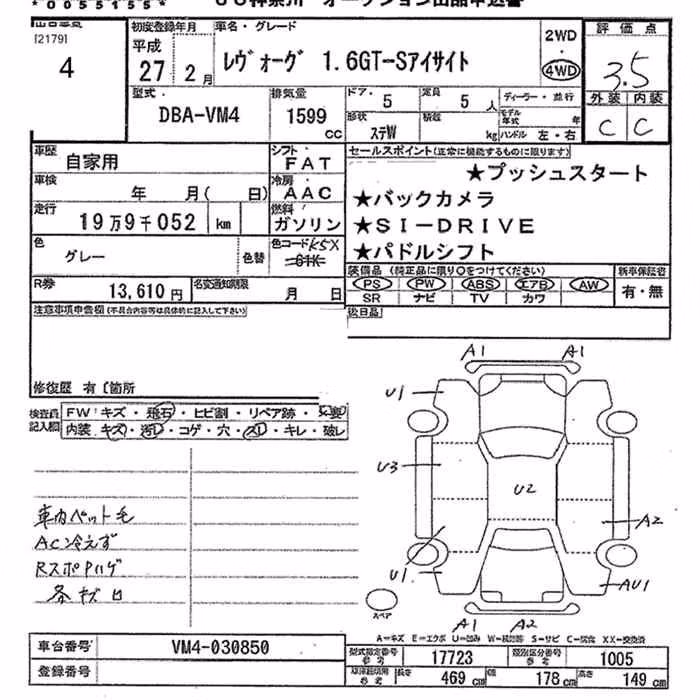 *0055155*
USS神奈川 オークション出品申込書
[2179]
4
初度登録年月
平成
27 2月
車名・グレード
レヴォーグ 1.6GT-Sアイサイト
2WD
・
4WD
評価点
3.5
外装 内装
C C
型式
DBA-VM4
排気量
1599
cc
ドア・ 5
定員 5 人
形状 ステW
積載 kg
ディーラー・並行
モデル年式 年
ハンドル 左・右
車歴
自家用
シフト・
FAT
車検
年 月( 日)
冷房
AAC
走行
19万9千052 km
燃料
ガソリン
色
グレー
色替
色コード K5X
61K
R券
13,610円
名変通知期限
月 日
セールスポイント(正常に機能するものに限ります)
★プッシュスタート
★バックカメラ
★SI-DRIVE
★パドルシフト
装備品 (純正品に限り○をつけてください)
PS PW ABS エアB AW
SR ナビ TV カワ
新車保証書
有・無
後日品
注意事項申告欄(不具合内容等は具体的に記入して下さい)
修復歴 有〔箇所
検査員記入欄
FW キズ・飛石・ヒビ割・リペア跡・交要
内装 キズ・汚レ・コゲ・穴・スレ・キレ・破レ
車内ペット毛
AC冷えず
RスポPハゲ
A1 A1
U1
U3
U2
A2
U1
AU1
A1 A2
スペア
A=キズ E=エクボ U=凹み W=補修跡 S=サビ C=腐食 XX=交換済
車台番号
VM4-030850
登録番号
型式指定番号 参考
17723
類別区分番号 参考
1005
車庫証明用 参考
長さ 469 cm
幅 178 cm
高さ 149 cm